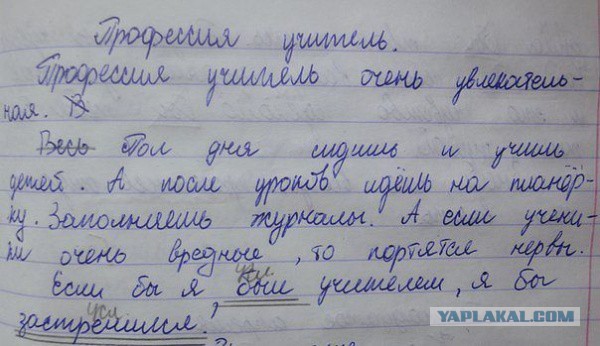 Профессия учитель.
Профессия учитель очень увлекатель-
ная. В
Весь Пол дня сидишь и учишь
детей. А после уроков идёшь на планёр-
ку. Заполняешь журналы. А если учени-
ки очень вредные, то портятся нервы.
усл
Если бы я был учителем, я бы
усл
застрелился.
YAPLAKAL.COM